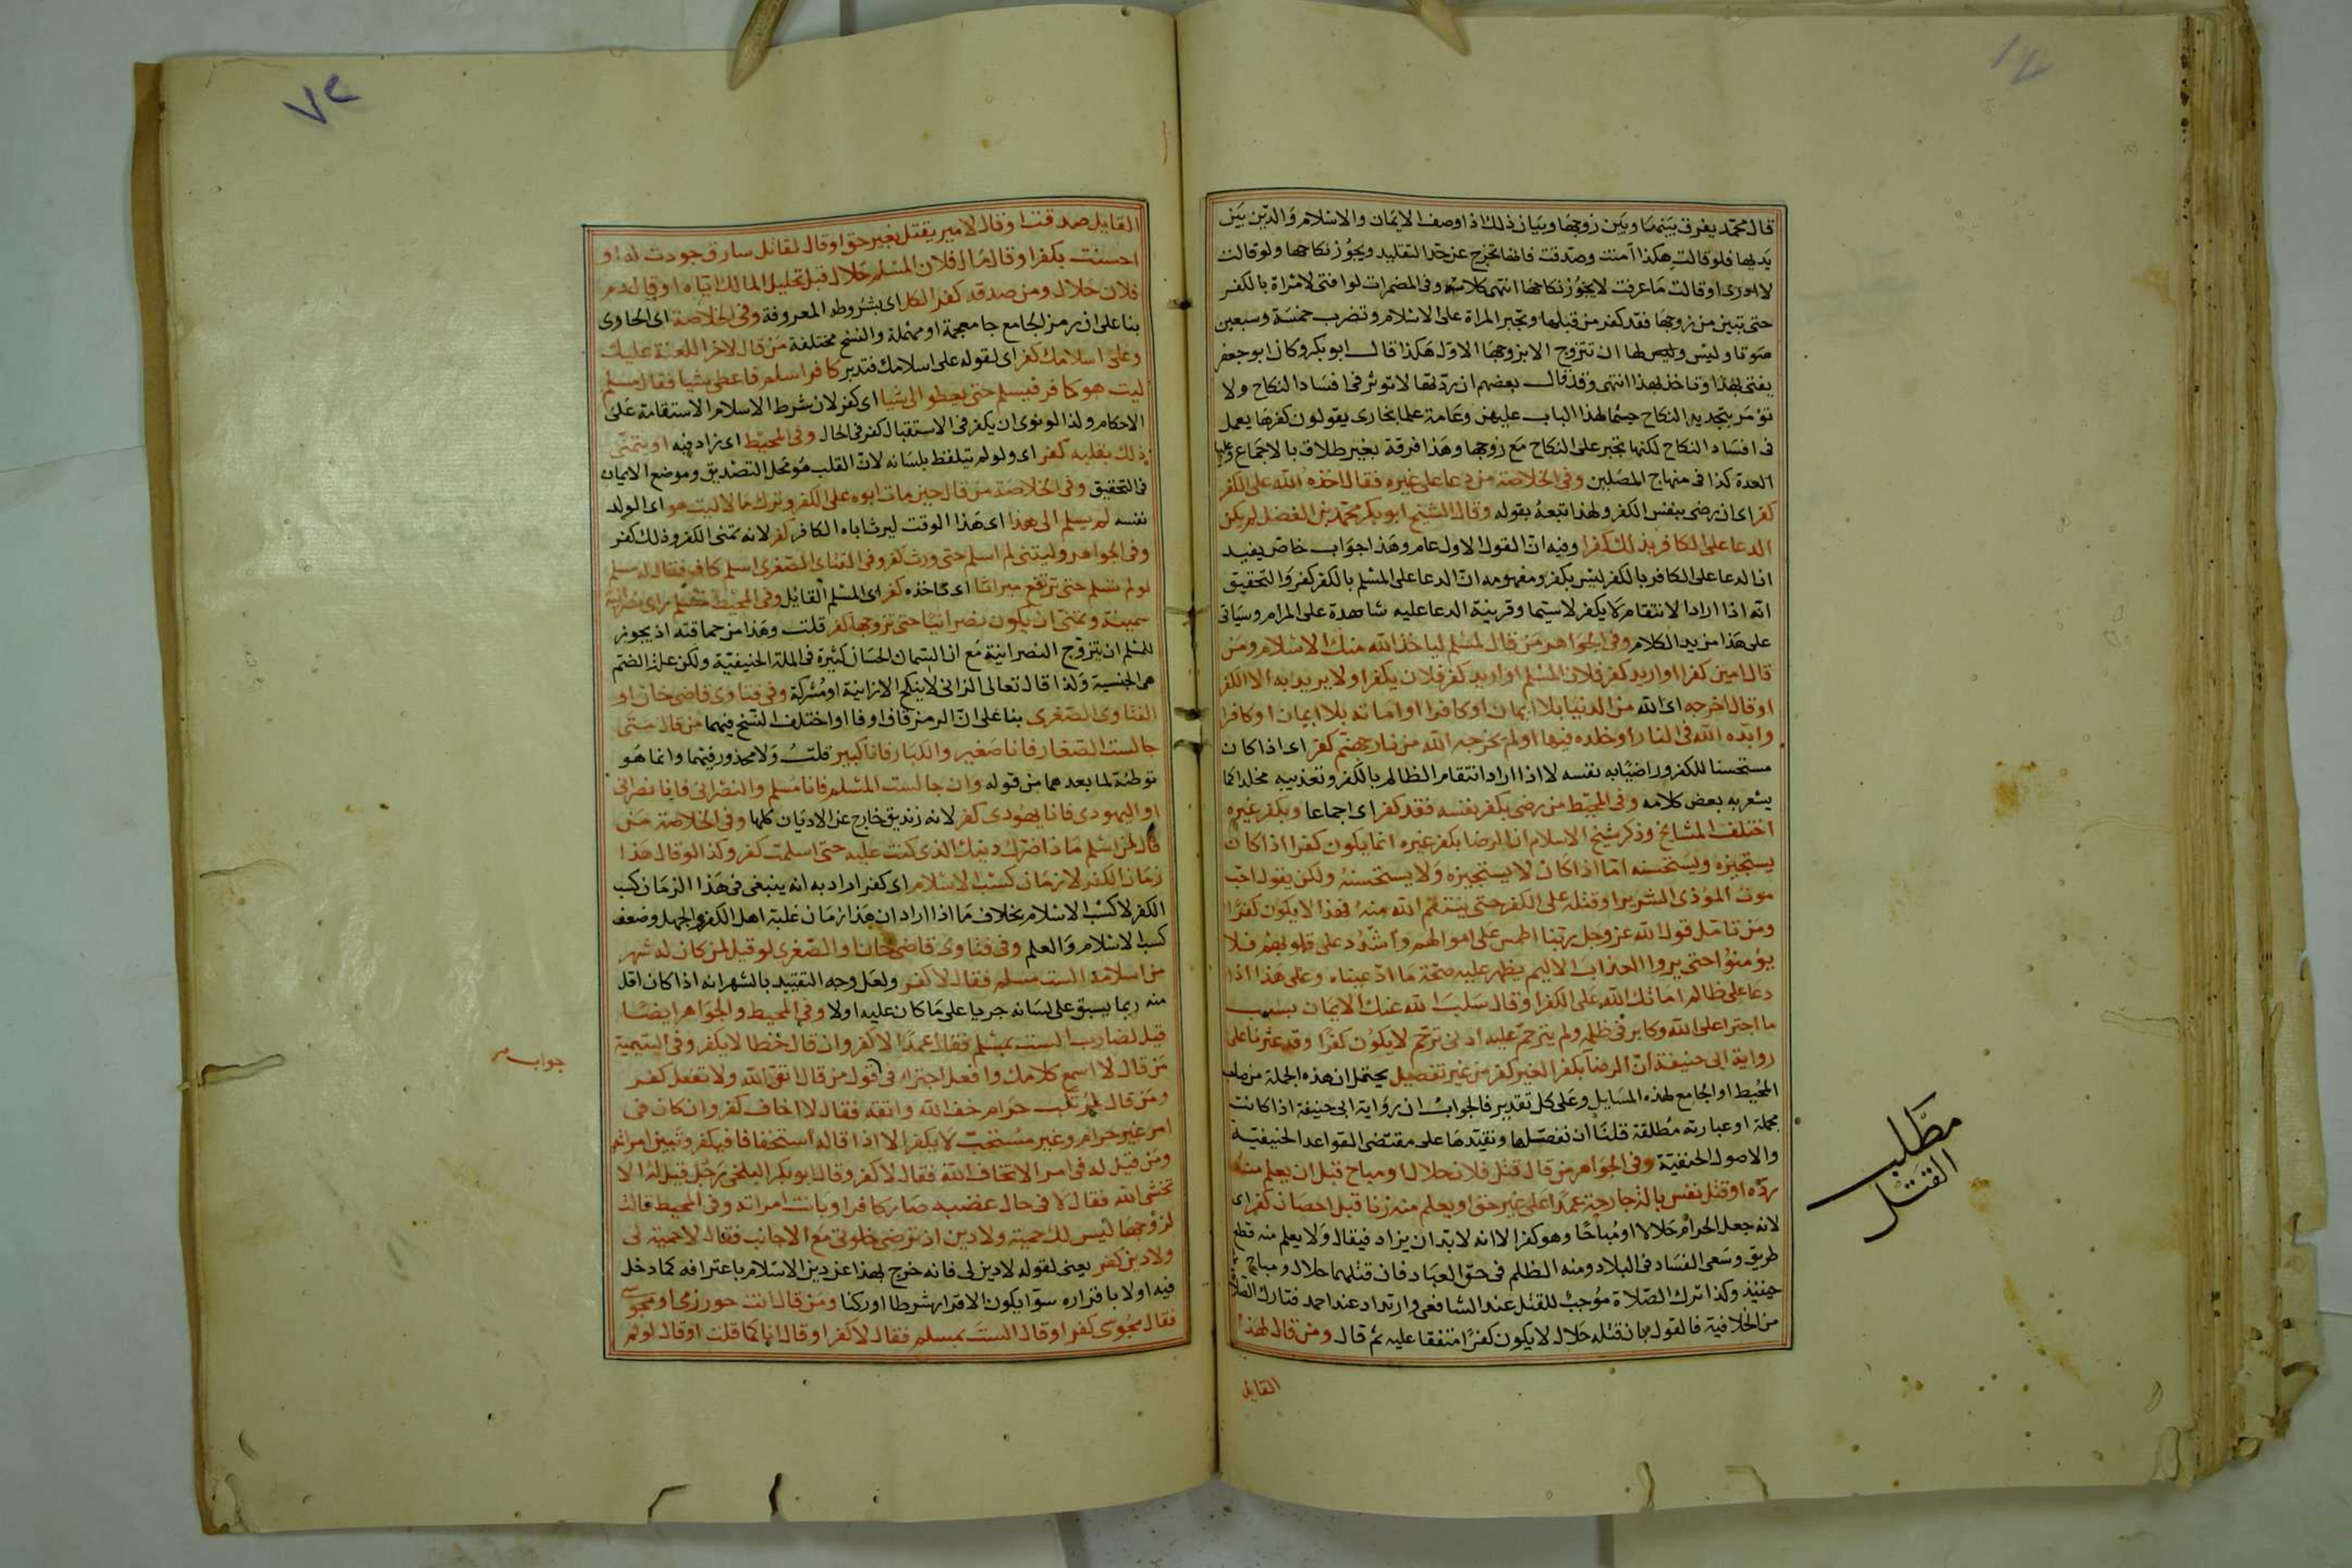 قال محمد يفرق بينهما وبين زوجها وبيان ذلك اذا وصف الايمان والاسلام والدين بين
يديها فلو قالت هكذا آمنت وصدقت فانها تخرج عن حد التقليد ويجوز نكاحها ولو قالت
لا ادرى او قالت ما عرفت لا يجوز نكاحها انتهى كلامه وفى المضمرات لو افتى لامراة بالكفر
حتى تبين من زوجها فقد كفر من قبلها وتجبر المراة على الاسلام وتضرب خمسة وسبعين
سوتا وليس لها ان تتزوج الا بزوجها الاول هكذا قال ابو بكر وكان ابو جعفر
يفتى بهذا وناخذ بهذا انتهى وقد قال بعضهم ان ردتها لا تؤثر فى افساد النكاح ولا
تؤمر بتجديد النكاح حسما لهذا الباب عليهن وعامة علما بخارى يقولون كفرها يعمل
فى افساد النكاح لكنها تجبر على النكاح مع زوجها وهذا فرقة بغير طلاق بالاجماع وعليها
العدة كذا فى منهاج المصلين وفى الخلاصة من دعا على غيره فقال اخذه الله على الكفر
كفر اى ان رضى بنفس الكفر ولهذا اتبعه بقوله وقال الشيخ ابو بكر محمد بن الفضل لم يكن
الدعا على الكافر بذلك كفرا وفيه ان القول الاول عام وهذا جواب خاص يفيد
ان الدعا على الكافر بالكفر ليس بكفر ومفهومه ان الدعا على المسلم بالكفر كفر والتحقيق
انه اذا اراد الانتقام لا يكفر لاسيما وقرينة الدعا عليه شاهدة على المرام وسياتى
على هذا مزيد الكلام وفى الجواهر من قال لمسلم لياخذ الله منك الاسلام ومن
قال امين كفرا او اريد كفر فلان المسلم او اريد كفر فلان يكفر او لا يريد به الا الكفر
او قال اخرجه اى الله من الدنيا بلا ايمان او كافرا او اماته بلا ايمان او كافرا
وابده الله فى النار او خلده فيها او لم يخرجه الله من نار جهنم كفر اى اذا كان
مستحسنا للكفر وراضيا به نفسه لا اذا اراد انتقام الظالم بالكفر وتعذيبه مخلدا كما
يشعر به بعض كلامه وفى المحيط من رضى بكفر نفسه فقد كفر اى اجماعا وبكفر غيره
اختلف المشايخ وذكر شيخ الاسلام ان الرضا بكفر غيره انما يكون كفرا اذا كان
يستجيزه ويستحسنه اما اذا كان لا يستجيزه ولا يستحسنه ولكن يقول احب
موت المؤذى الشرير او قتله على الكفر حتى ينتقم الله منه فهذا لا يكون كفرا
ومن تامل قول الله عز وجل ربنا اطمس على اموالهم واشدد على قلوبهم فلا
يؤمنوا حتى يروا العذاب الاليم يظهر عليه صحة ما ادعيناه وعلى هذا اذا
دعا على ظالم اماتك الله على الكفر او قال سلب الله عنك الايمان بسبب
ما اجترا على الله وكابر فى ظلمه ولم يترحم عليه ادنى ترحم لا يكون كفرا وقد عثرنا على
رواية ابى حنيفة ان الرضا بكفر الغير كفر من غير تفصيل يحتمل ان هذه الجملة من صاحب
المحيط او الجامع لهذه المسايل وعلى كل تقدير فالجواب ان رواية ابى حنيفة اذا كانت
مجملة او عبارته مطلقة قلنا ان نفصلها ونقيدها على مقتضى القواعد الحنيفية
والاصول الحنفية وفى الجواهر من قال قتل فلان حلال او مباح قبل ان يعلم منه
رده او قتل نفس بالة جارحة عمدا على غير حق او يعلم منه زنا قبل احصان كفر اى
لانه جعل الحرام حلالا او مباحا وهو كفر الا انه لابد ان يزاد فيقال ولا يعلم منه قطع
طريق وسعى الفساد فى البلاد ومنه الظلم فى حق العباد فان قتلهما حلال ومباح
حينئذ وكذا ترك الصلاة موجب للقتل عند الشافعى وارتداد عند احمد فتارك الصلاة
من الخلافية فالقول بان قتله حلال لا يكون كفرا متفقا عليه ثم قال ومن قال لهذا
القايل
مطلب
القتل
٧٢
القايل صدقت او قال لامير يقتل بغير حق او قال لقاتل سارق جودت له او
احسنت يكفر او قال مال فلان المسلم حلال قبل تحليل المالك اياه او قال دم
فلان حلال ومن صدقه كفر الكل اى بشروطه المعروفة وفى الخلاصة اى الحاوى
بنا على ان رمز الجامع جا معجمة او مهملة والنسخ مختلفة من قال لاخر اللعنة عليك
وعلى اسلامك كفر اى لقوله على اسلامك فتدبر كافر اسلم فاعطى شيا فقال مسلم
ليت هو كافر فيسلم حتى يعطو الى شيا اى كفر لان شرط الاسلام الاستقامة على
الاحكام ولذا لو نوى ان يكفر فى الاستقبال كفر فى الحال وفى المحيط اى زاد فيه او يتمنى
ذلك بقلبه كفر اى ولو لم يتلفظ بلسانه لان القلب هو محل التصديق وموضع الايمان
فى التحقيق وفى الخلاصة من قال حين مات ابوه على الكفر وترك مالا ليت هو اى الولد
نفسه لم يسلم الى هذا اى هذا الوقت ليرث اباه الكافر كفر لانه تمنى الكفر وذلك كفر
وفى الجواهر وليتنى لم اسلم حتى ورث كفر وفى الفتاوى الصغرى اسلم كافر فقال له مسلم
لو لم تسلم حتى ترتفع ميراثا اى تاخذه كفر اى المسلم القايل وفى المحيط مسلم راى نصرانية
سمينة وتمنى ان يكون نصرانيا حتى تزوجها كفر قلت وهذا من حماقته اذ يجوز
للمسلم ان يتزوج النصرانية مع ان السمان الحسان كثيرة فى الملة الحنيفية ولكن علة الضم
هى الجنسية ولذا قال تعالى الزانى لا ينكح الا زانية او مشركة وفى فتاوى قاضى خان او
الفتاوى الصغرى بنا على ان الرمز قاف او فا او اختلف النسخ فيهما من قال متى
جالست الصغار فانا صغير والكبار فانا كبير قلت ولا محذور فيهما وانما هو
توطئة لما بعدهما من قوله وان جالست المسلم فانا مسلم والنصرانى فانا نصرانى
او اليهودى فانا يهودى كفر لانه زنديق خارج عن الاديان كلها وفى الخلاصة من
قال لمن اسلم ما ذا ضرك دينك الذى كنت عليه حتى اسلمت كفر وكذا لو قال هذا
زمان الكفر لا زمان كسب الاسلام اى كفر اراد به انه ينبغى فى هذا الزمان كسب
الكفر لا كسب الاسلام بخلاف ما اذا اراد ان هذا زمان غلبة اهل الكفر والجهل وضعف
كسب الاسلام والعلم وفى فتاوى قاضى خان او الصغرى لو قيل لمن كان له شهر
من اسلامه الست مسلم فقال لا كفر ولعل وجه التقييد بالشهر انه اذا كان اقل
منه ربما يسبق على لسانه جريا على ما كان عليه اولا وفى المحيط والجواهر ايضا
قيل لضارب الست بمسلم فقال عمدا لا كفر وان قال خطا لا يكفر وفى اليتيمية
من قال لا اسمع كلامك وافعل اجتراء فى قول من قال اتق الله ولا تفعل كفر
ومن قال لمرتكب حرام خف الله واتقه فقال لا اخاف كفر وان كان فى
امر غير حرام وغير مستحب لا يكفر الا اذا قاله استخفافا فيكفر وتبين امراته
ومن قيل له فى امر الا تخاف الله فقال لا كفر وقال ابو بكر البلخى رجل قيل له الا
تخشى الله فقال لا فى حال غضبه صار كافرا وبانت امراته وفى المحيط قالت
لزوجها ليس لك حمية ولا دين اذ ترضى خلوتى مع الاجانب فقال لا حمية لى
ولا دين كفر يعنى لقوله لا دين لى فانه خرج بهذا عن دين الاسلام باعترافه كما دخل
فيه اولا باقراره سوا يكون الاقرار شرطا او ركنا ومن قال انت حورزمى او مجوسى
فقال مجوسى كفر او قال الست بمسلم فقال لا كفر او قال انا كما قلت او قال لو لم
جواب